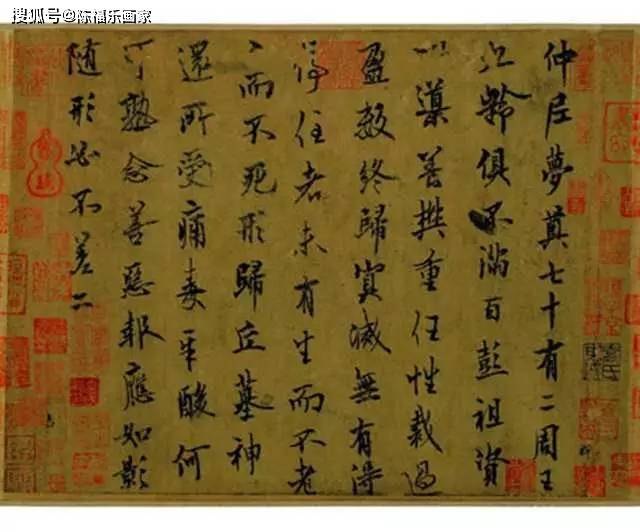 搜狐号@陈福乐画家
仲尼夢奠七十有二周王
九齡俱不滿百彭祖資
以導養樊重任性裁過
盈數終歸冥滅無有得
停住者未有生而不老
々而不死形歸丘墓神
還所受痛毒辛酸何
可熟念善惡報應如影
隨形必不差二